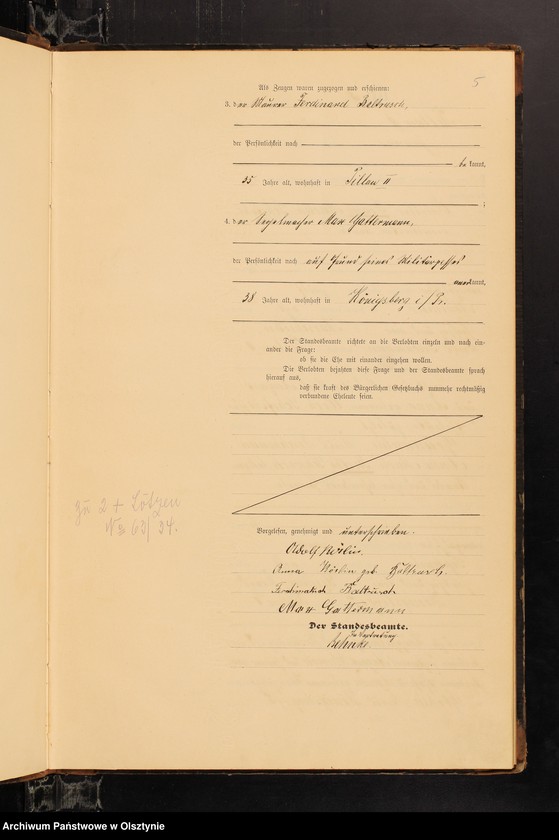 5
Als Zeugen waren zugezogen und erschienen:
3. der Maurer Ferdinand Baltrusch,
der Persönlichkeit nach
be kannt,
55 Jahre alt, wohnhaft in Pillau II
;
4. der Segelmacher Max Gattermann,
der Persönlichkeit nach auf Grund seines Militärpasses
anerkannt,
38 Jahre alt, wohnhaft in Königsberg i/Pr.
Der Standesbeamte richtete an die Verlobten einzeln und nach ein-
ander die Frage:
ob sie die Ehe mit einander eingehen wollen.
Die Verlobten bejahten diese Frage und der Standesbeamte sprach
hierauf aus,
daß sie kraft des Bürgerlichen Gesetzbuchs nunmehr rechtmäßig
verbundene Eheleute seien.
zu 2 + Lötzen
No 63/34.
Vorgelesen, genehmigt und unterschrieben.
Adolf
Anna geb.
Ferdinand Baltrusch
Max Gattermann
Der Standesbeamte.
In Vertretung
Archiwum Państwowe w Olsztynie